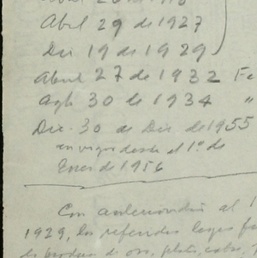 Abril 29 de 1927
Dic 19 de 1929
Abril 27 de 1932
Agto 30 de 1934 "
Dic. 30 de Dic de 1955
en vigor desde el 1º de
Enero de 1956
Con anterioridad al 1
1929, los referidos
de oro, plata, cobre,